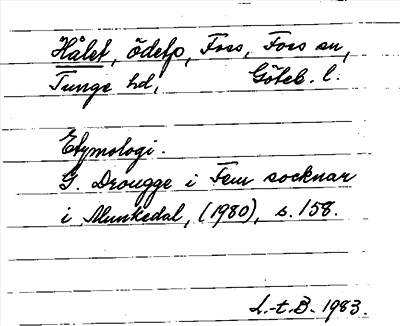 Hålet, ödetp, Foss, Foss sn,
Tunge hd, Göteb. l.
Etymologi.
G. Drougge i Fem socknar
i Munkedal, (1980), s. 158.
L.-t. B. 1983.